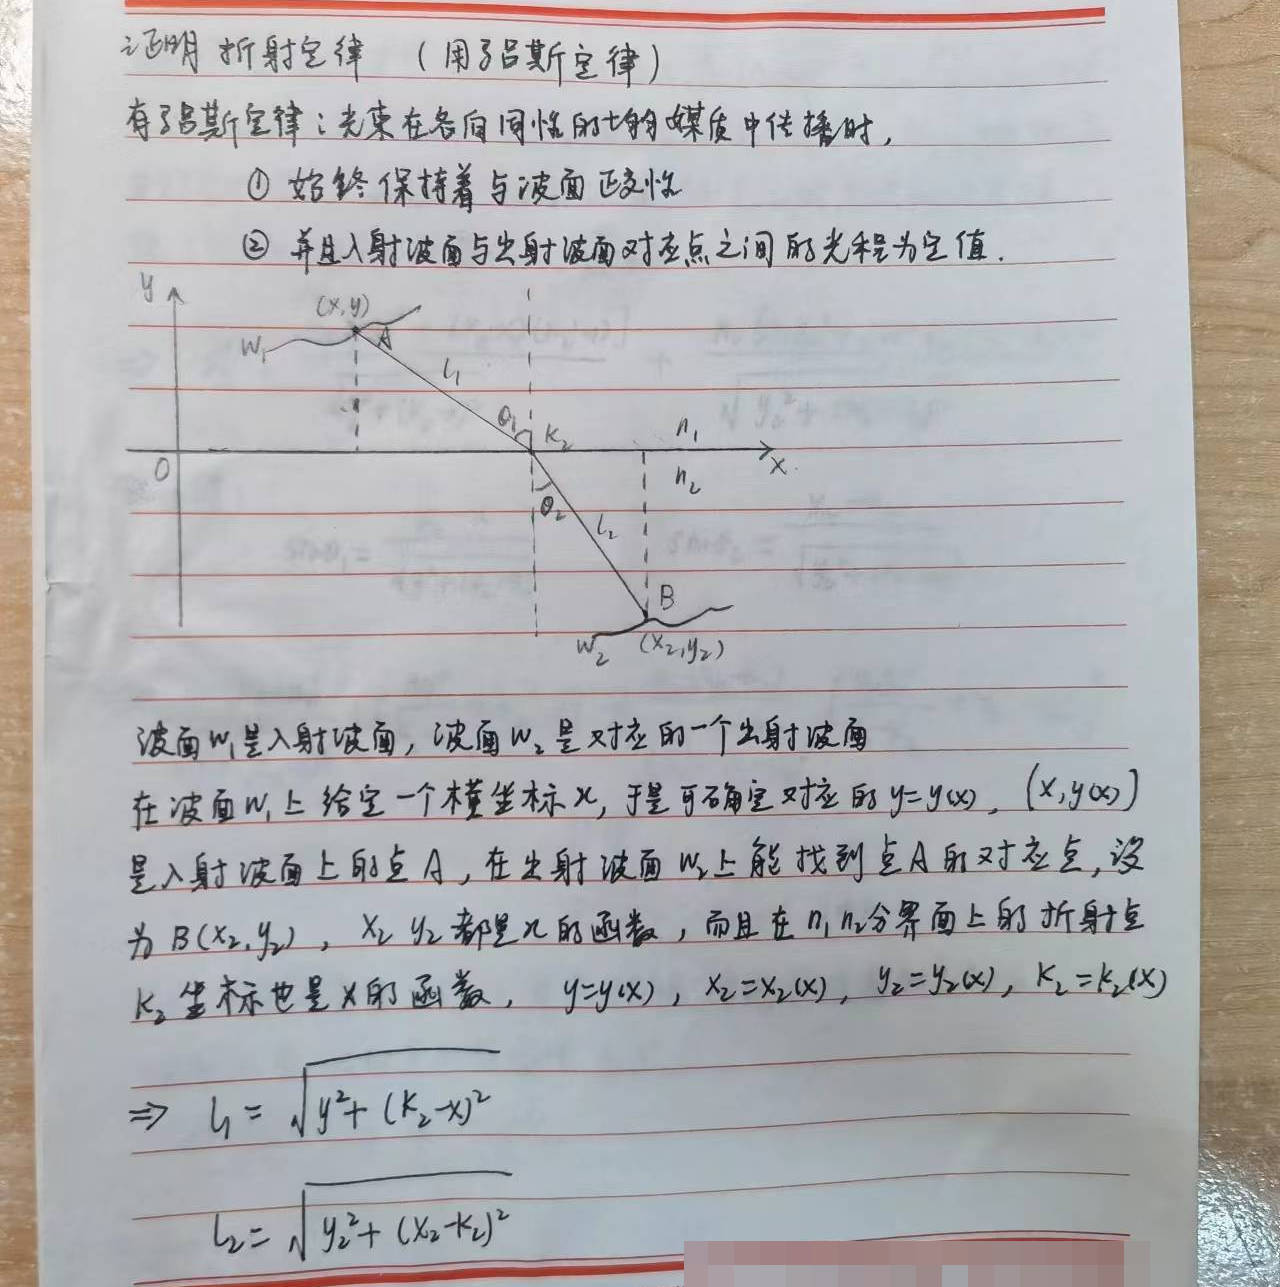 证明 折射定律 (用马吕斯定律)
有马吕斯定律:光束在各向同性的均匀媒质中传播时,
① 始终保持着与波面正交性
② 并且入射波面与出射波面对应点之间的光程为定值.
y
(x,y)
W₁
A
l₁
θ₁
K₂
n₁
O
x
n₂
θ₂
l₂
B
W₂ (x₂,y₂)
波面W₁是入射波面,波面W₂是对应的一个出射波面
在波面W₁上给定一个横坐标x,于是可确定对应的y=y(x),(x,y(x))
是入射波面上的点A,在出射波面W₂上能找到点A的对应点,设
为B(x₂,y₂),x₂ y₂都是x的函数,而且在n₁n₂分界面上的折射点
K₂坐标也是x的函数,y=y(x),x₂=x₂(x),y₂=y₂(x),K₂=K₂(x)
⇒ l₁=√(y²+(K₂-x)²)
l₂=√(y₂²+(x₂-K₂)²)